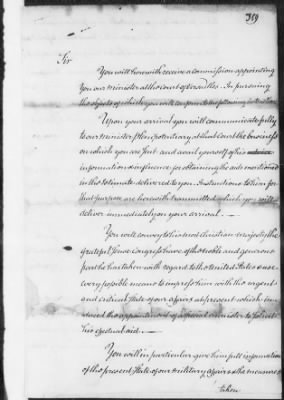 359
Sir
You will herewith receive a commission appointing
you our minister at the court of Versailles. In pursuing
the objects of which you will conform to the following instructions
Upon your arrival you will communicate fully
to our minister plenipotentiary at that court the business
on which you are sent and avail yourself of his
information & influence for obtaining the aids mentioned
in the estimate delivered to you. Instructions to him for
that purpose are herewith transmitted which you will
deliver immediately on your arrival. —
You will convey to his most Christian majesty the
grateful sense Congress have of the noble and generous
part he has taken with regard to the United States & use
every possible means to impress him with the urgent
and critical state of our affairs at present which in-
duced the appointment of a special minister to solicit
his effectual aid. —
You will in particular give him full information
of the present state of our military affairs & the measures
taken